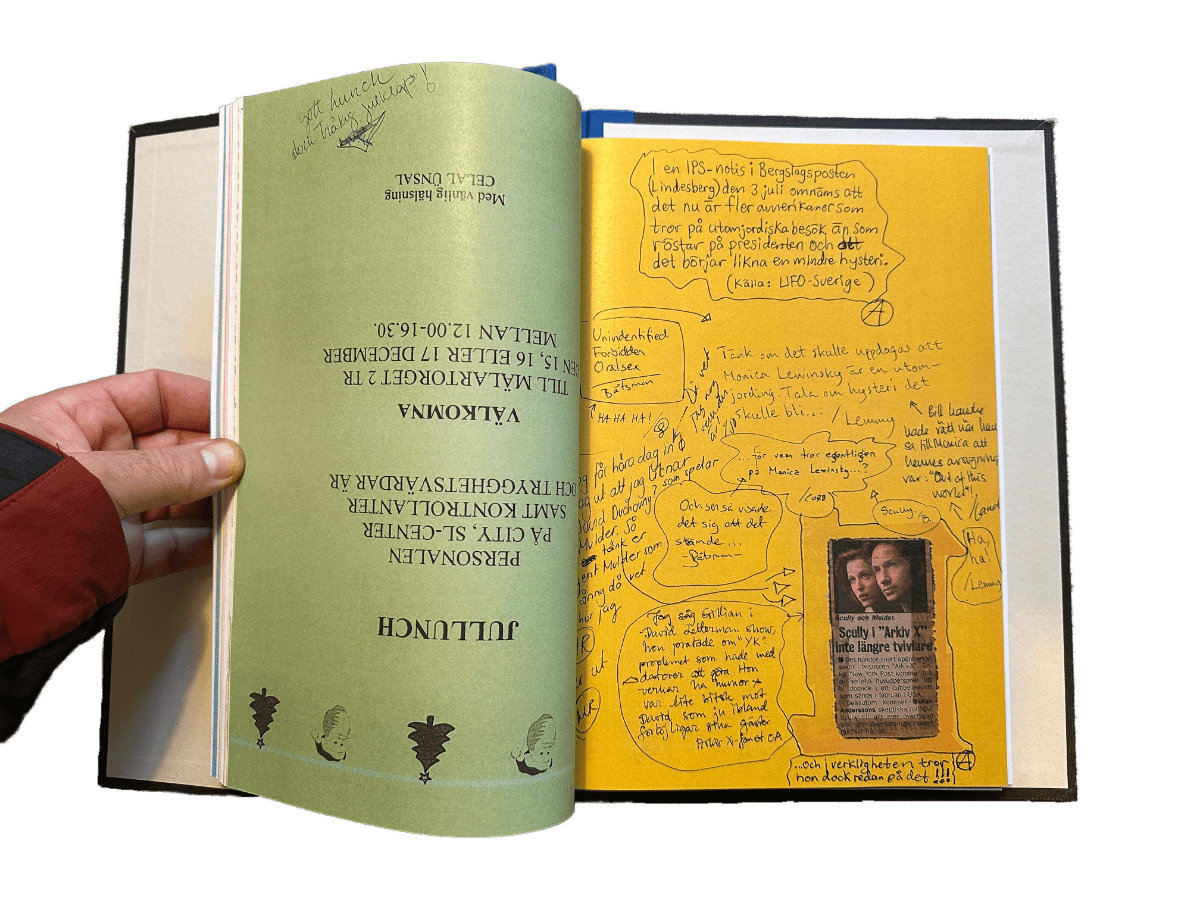 JULLUNCH
PERSONALEN
PÅ CITY, SL-CENTER
SAMT KONTROLLANTER
OCH TRYGGHETSVÄRDAR ÄR
VÄLKOMNA
TILL MÄLARTORGET 2 TR
DEN 15, 16 ELLER 17 DECEMBER
MELLAN 12.00-16.30.
Med vänlig hälsning
CELAL ÜNSAL
gott lunch
doch tråkig julklapp!
I en IPS-notis i Bergslagsposten
(Lindesberg) den 3 juli omnäms att
det nu är fler amerikaner som
tror på utomjordiska besök än som
röstar på presidenten och att
det börjar likna en mindre hysteri.
(Källa: UFO-Sverige)
A
Unidentified
Forbidden
Oralsex
Båtsman
HA HA HA!
Tänk om det skulle uppdagas att
Monica Lewinsky är en utom-
jording. Tala om hysteri det
skulle bli...
/Lemmy
Bill kanske
hade rätt när han
sa till Monica att
hennes avsugning
var "Out of this
world"!
...för vem tror egentligen
på Monica Lewinsky...?
/COBB
Och sen så visade
det sig att det
stämde...
-Båtsman-
Scully
Ha,
ha!
/Lemmy
får höra dag in
ut att jag liknar
David Duchovny? som spelar
Mulder. Så
tänk er
agent Mulder som
då vet
hur jag
ut
Jag såg Gillian i
David Letterman show,
hon pratade om "YK"
problemet som hade med
datorer att göra Hon
verkar ha humor
var lite kritisk mot
David som ju ibland
förlöjligar sina gäster
Arkiv X-fanet OA
Scully och Mulder.
Scully i "Arkiv X"
inte längre tvivlare
Det händer snart spännande
saker i tv-succén "Arkiv X".
New York Post kommer
seriens huvudpersoner att
bli dödade i ett dubbelavsnitt
som sänds i februari i USA.
Dessutom kommer Gillian
Anderssons skeptiska rollfigur
Scully bli allt mer övertygad
...och i verkligheten tror
hon dock redan på det!!!
A